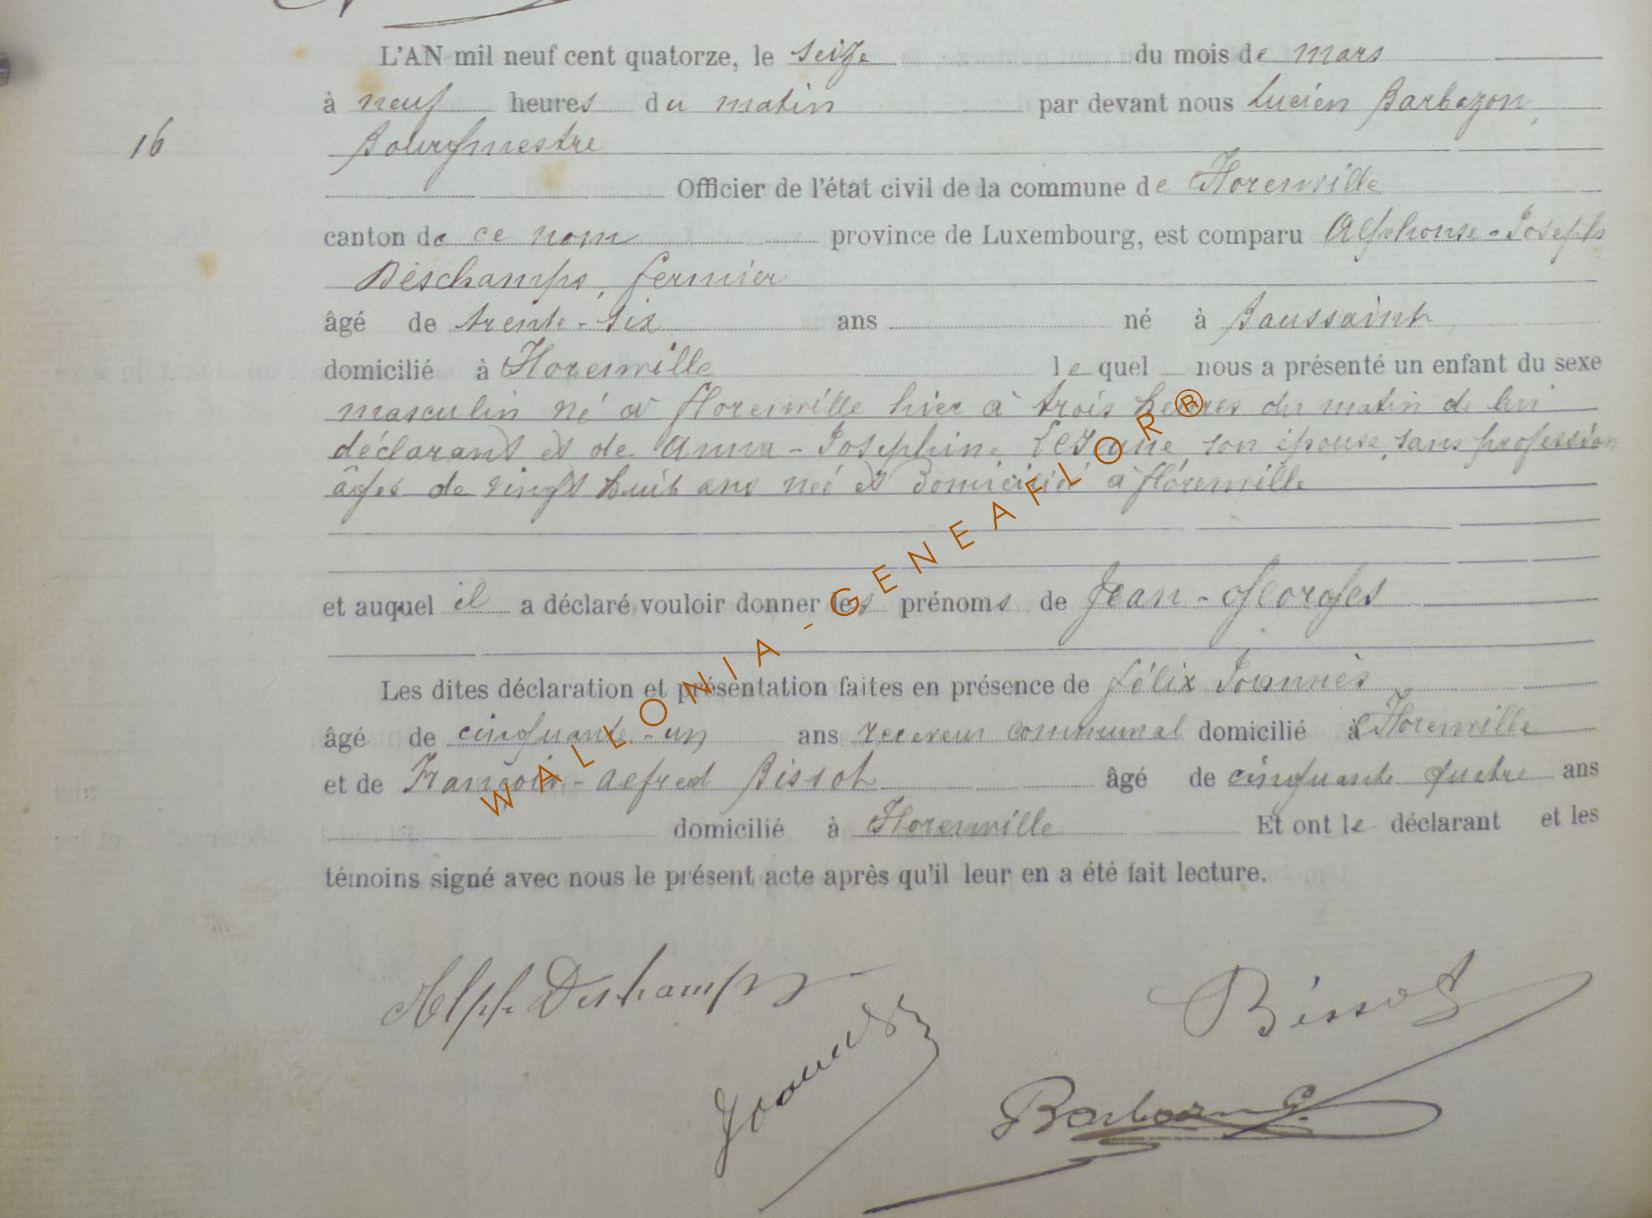 L'AN mil neuf cent quatorze, le seize du mois de mars
à neuf heures du matin par devant nous Lucien Barbazon,
16 Bourgmestre
Officier de l'état civil de la commune de Florenville
canton de ce nom province de Luxembourg, est comparu Alphonse-Joseph
Deschamps, fermier
âgé de trente-six ans né à Saussaint
domicilié à Florenville lequel nous a présenté un enfant du sexe
masculin né à Florenville hier à trois heures du matin de lui
déclarant et de Anna-Josephine son épouse, sans profession
âgés de vingt huit ans née et domicilié à florenville
et auquel il a déclaré vouloir donner les prénoms de Jean-Georges
Les dites déclaration et présentation faites en présence de félix Joannès
âgé de cinquante-un ans receveur communal domicilié à Florenville
et de François-Alfred Bissot âgé de cinquante quatre ans
domicilié à Florenville Et ont le déclarant et les
témoins signé avec nous le présent acte après qu'il leur en a été fait lecture.
Alph Deschamps
Bissot
Joannès
Barbazon
WALLONIA-GENEAFLOR®